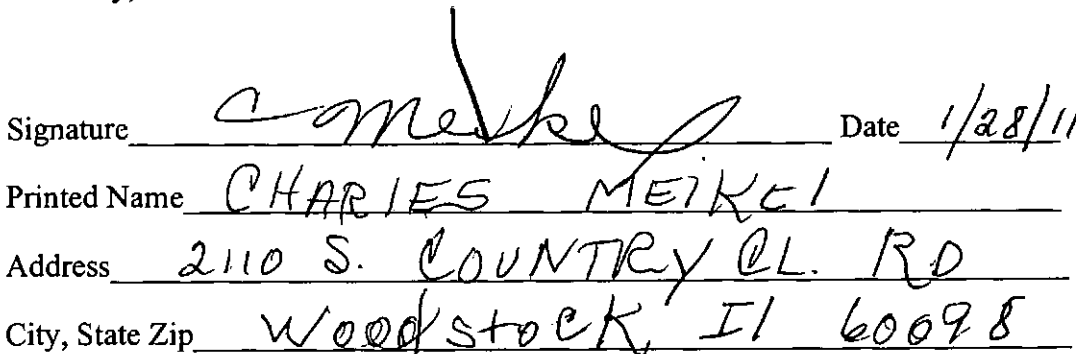 Signature C Meikel Date 1/28/11
Printed Name CHARlES MEiKEl
Address 2110 S. COUNTRY CL. RD
City, State Zip Woodstock, Il 60098